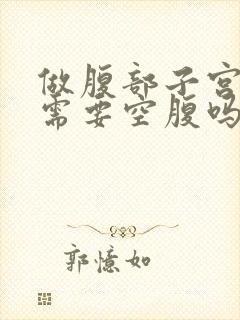 做腹部子宫
需要空腹吗
郭憶如